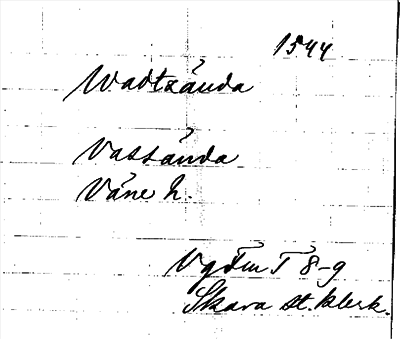 1544
Wadtzånda
Vassända
Väne h.
Vg Tm T 8-9
Skara st. klerk.